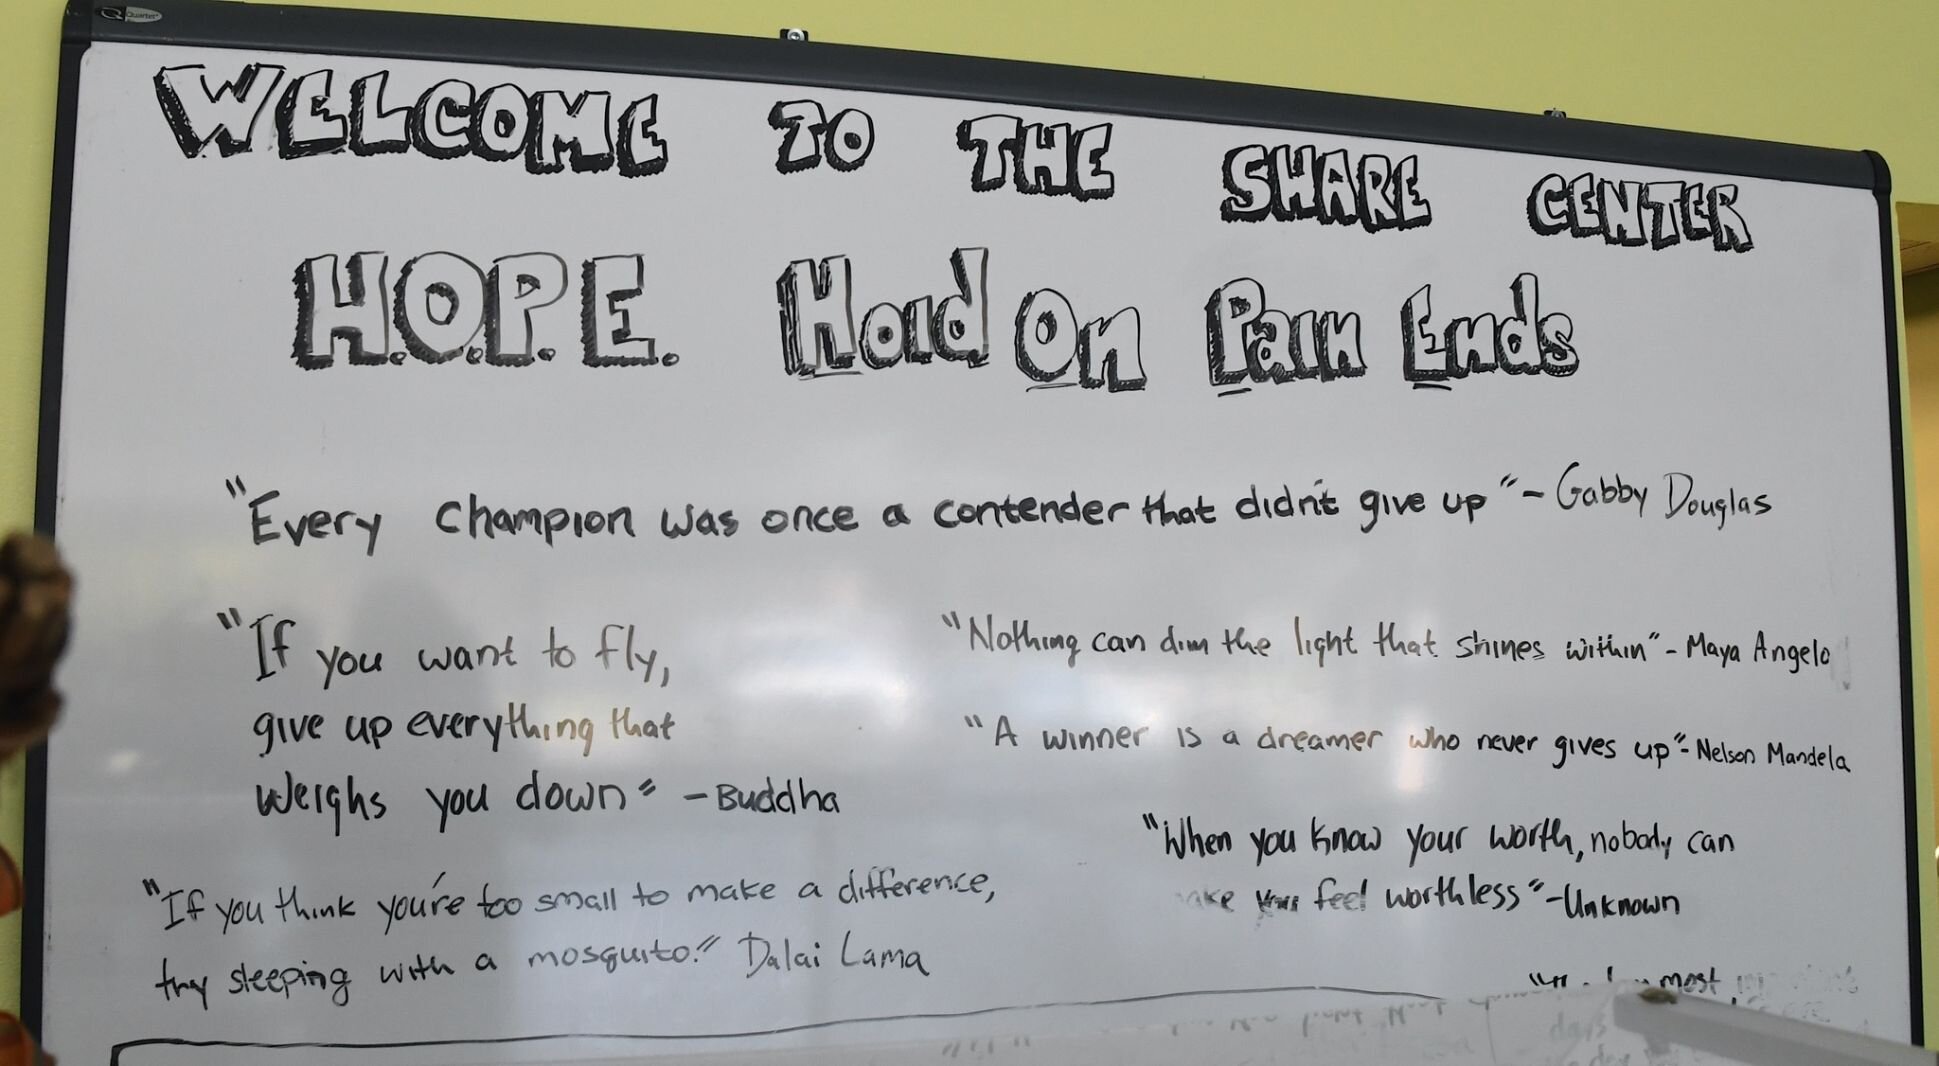 Quartet
WELCOME TO THE SHARE CENTER
H.O.P.E. Hold On Pain Ends
"Every champion was once a contender that didn't give up" - Gabby Douglas
"If you want to fly,
give up everything that
weighs you down" - Buddha
"If you think you're too small to make a difference,
try sleeping with a mosquito." Dalai Lama
"Nothing can dim the light that shines within" - Maya Angelo
"A winner is a dreamer who never gives up" - Nelson Mandela
"When you know your worth, nobody can
feel worthless" - Unknown
most